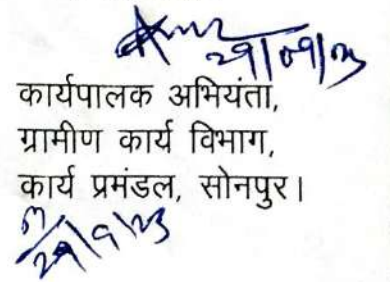 29/09/23
कार्यपालक अभियंता,
ग्रामीण कार्य विभाग,
कार्य प्रमंडल, सोनपुर।
29/9/23